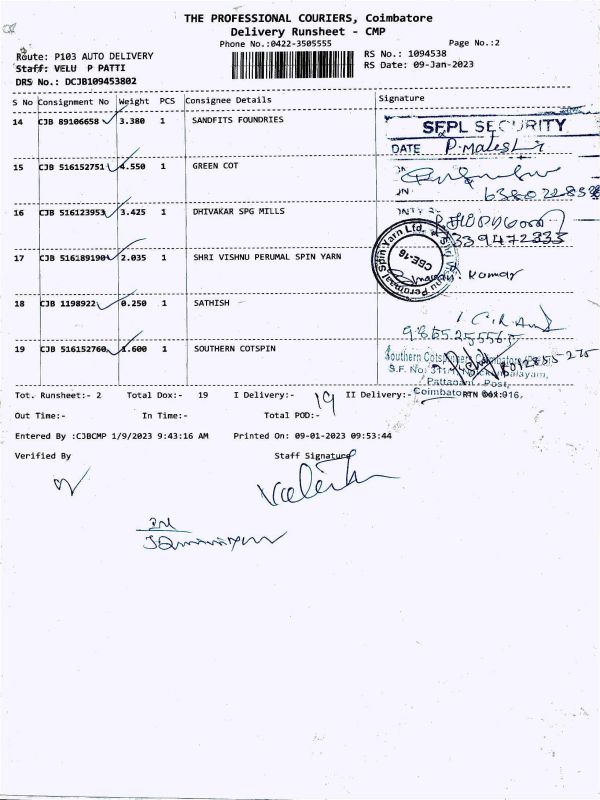 THE PROFESSIONAL COURIERS, Coimbatore
Delivery Runsheet - CMP
Phone No.:0422-3505555
Page No.:2
Route: P103 AUTO DELIVERY
RS No.: 1094538
Staff: VELU P PATTI
RS Date: 09-Jan-2023
DRS No.: DCJB109453802
S No Consignment No Weight PCS Consignee Details Signature
14 CJB 89106658 3.380 1 SANDFITS FOUNDRIES
SFPL SECURITY
DATE
15 CJB 516152751 4.550 1 GREEN COT
16 CJB 516123953 3.425 1 DHIVAKAR SPG MILLS
17 CJB 516189190 2.035 1 SHRI VISHNU PERUMAL SPIN YARN
Shri Vishnu Perumal Spin Yarn Ltd.
CBE-16
Kumar
18 CJB 1198922 0.250 1 SATHISH
19 CJB 516152760 1.600 1 SOUTHERN COTSPIN
Southern Cotspinners Coimbatore
S.F. No: 311/1
Pattanam Post,
Coimbatore 641 016,
Tot. Runsheet:- 2 Total Dox:- 19 I Delivery:- 19 II Delivery:- RTN Dox:-
Out Time:- In Time:- Total POD:-
Entered By :CJBCMP 1/9/2023 9:43:16 AM Printed On: 09-01-2023 09:53:44
Verified By Staff Signature